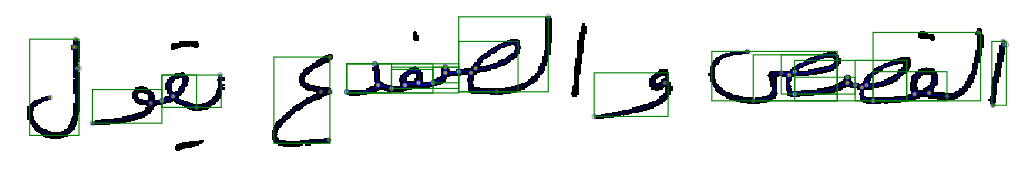 القصص و الصفدع يقول